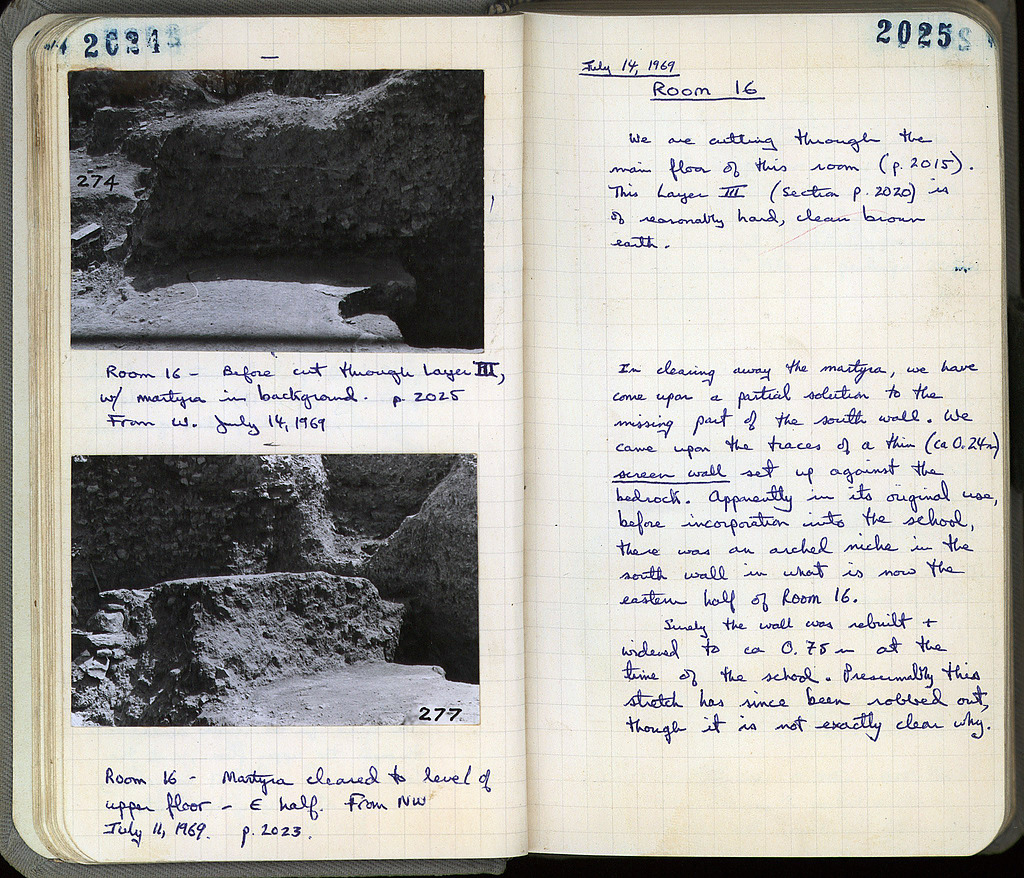 2024
274
Room 16 - Before cut through Layer III,
w/ martyra in background. p. 2025
From W. July 14, 1969
277
Room 16 - Martyra cleared to level of
upper floor - E half. From NW
July 11, 1969. p. 2023.
2025
July 14, 1969
Room 16
We are cutting through the
main floor of this room (p. 2015).
This Layer III (section p. 2020) is
of reasonably hard, clean brown
earth.
In clearing away the martyra, we have
come upon a partial solution to the
missing part of the south wall. We
came upon the traces of a thin (ca 0.24m)
screen wall set up against the
bedrock. Apparently in its original use,
before incorporation into the school,
there was an arched niche in the
south wall in what is now the
eastern half of Room 16.
Surely the wall was rebuilt +
widened to ca 0.75 m at the
time of the school. Presumably this
stretch has since been robbed out,
though it is not exactly clear why.